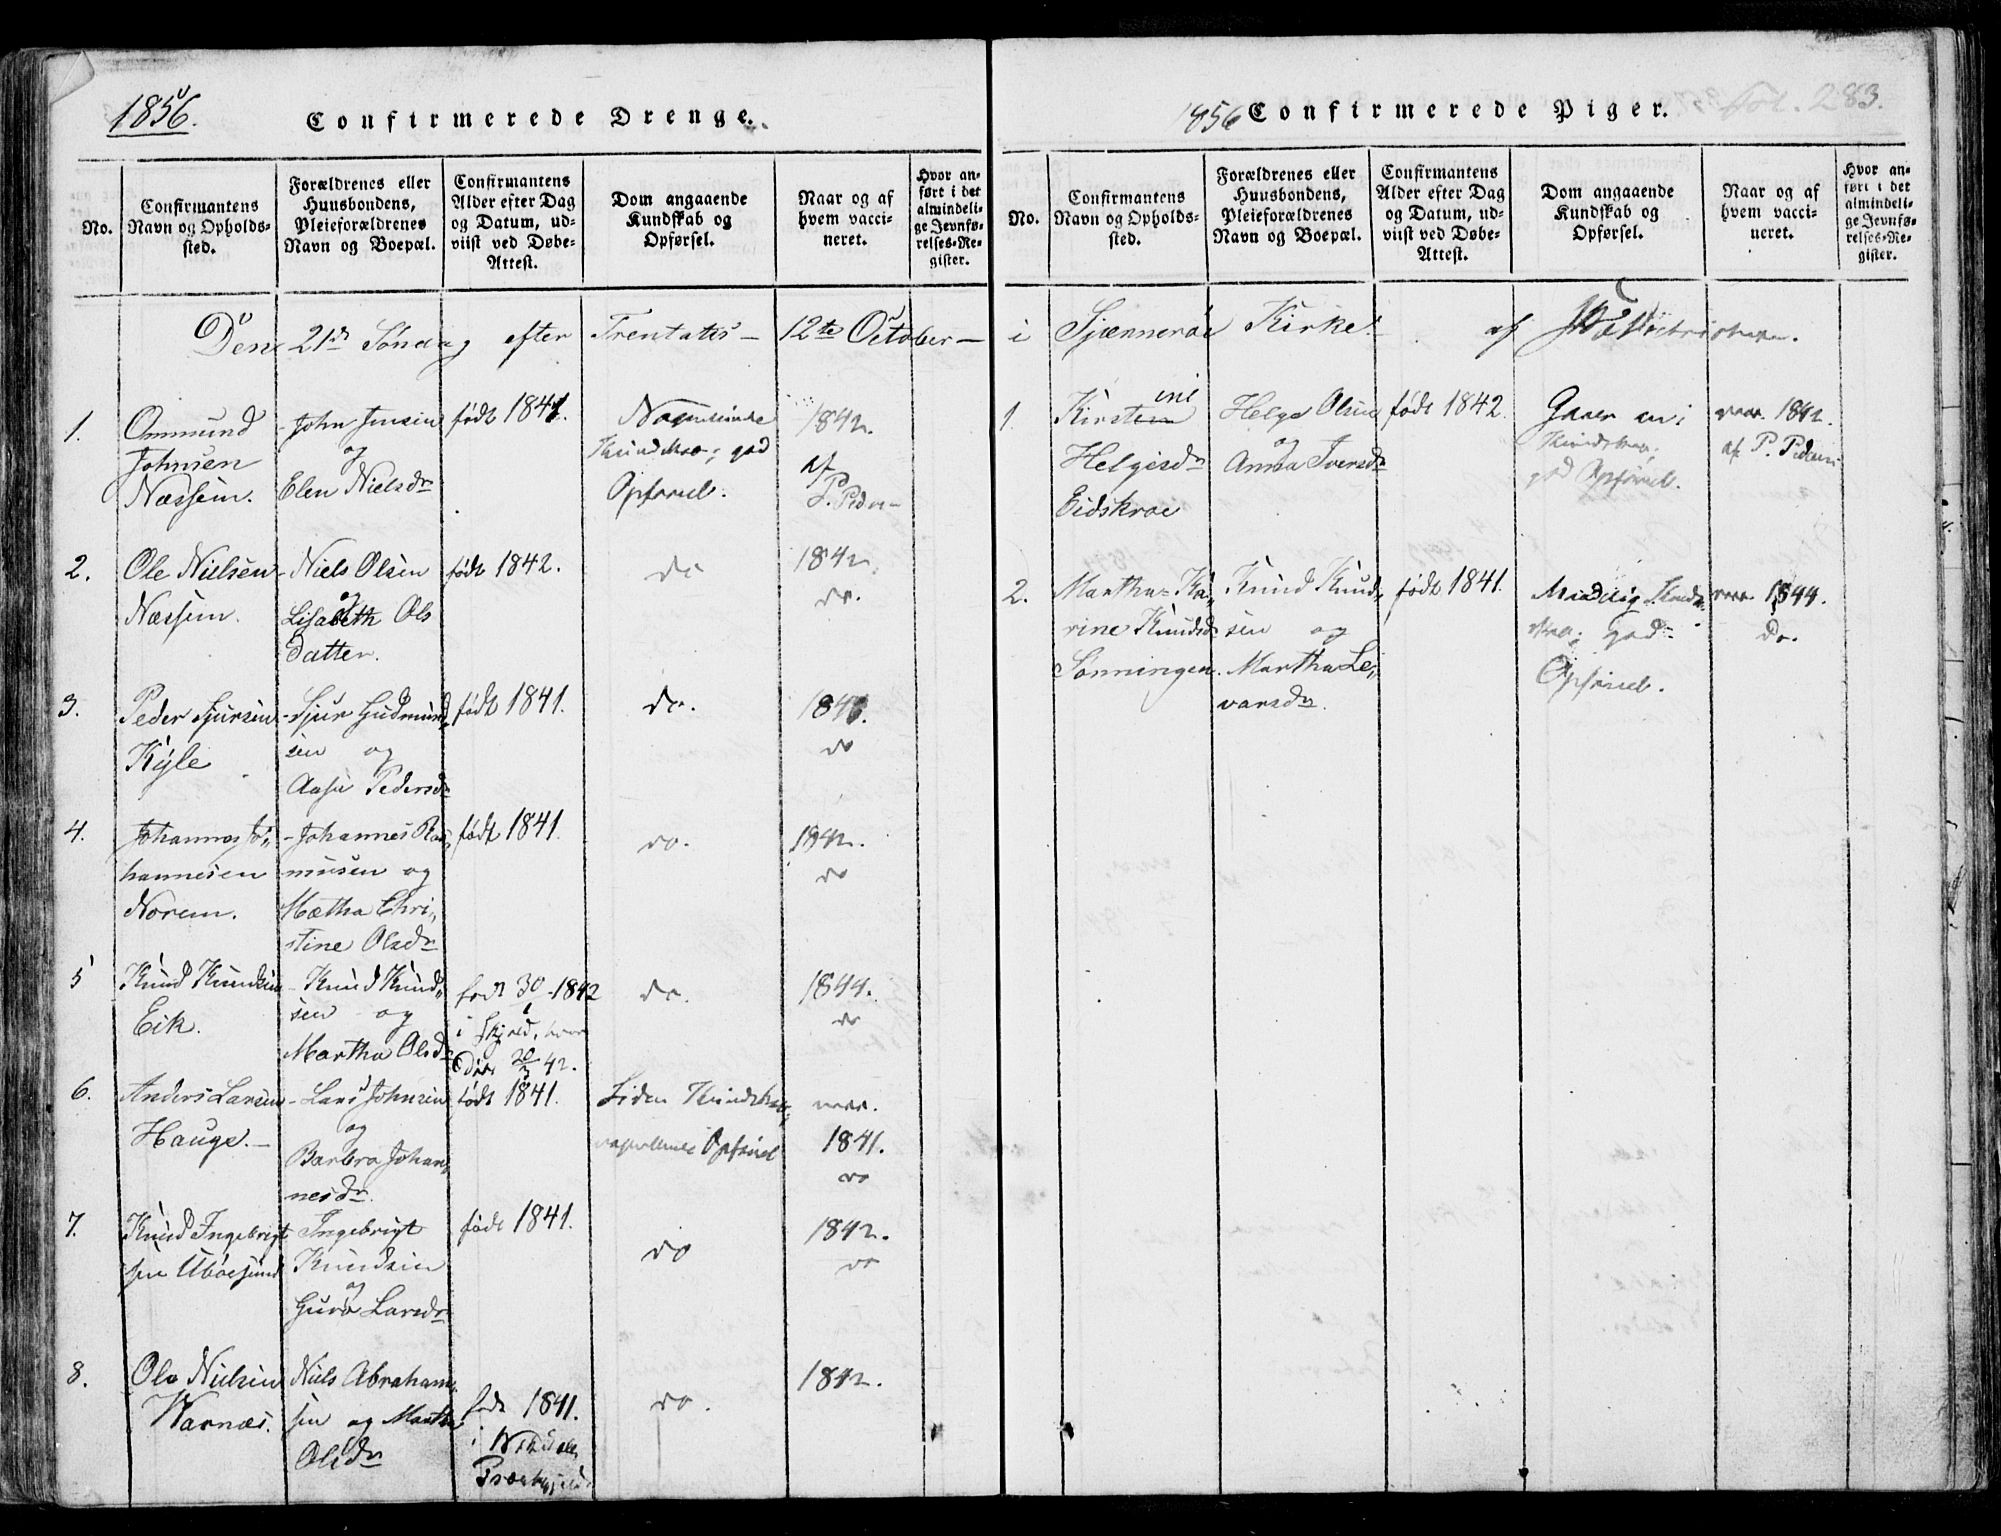 1856.
Confirmerede Drenge.
No.
Confirmantens
Navn og Opholds-
sted.
Forældrenes eller
Huusbondens,
Pleieforældrenes
Navn og Boepæl.
Confirmantens
Alder efter Dag
og Datum, ud-
viist ved Døbe-
Attest.
Dom angaaende
Kundskab og
Opførsel.
Naar og af
hvem vacci-
neret.
Hvor an-
ført i det
almindeli-
ge Jevnfø-
relses-Re-
gister.
Den 21de Søndag efter Trenitatis – 12te October –
1.
Ommund
Johnsen
Næssem.
John Jensen
og
Elen Nielsdr
født 1841.
god
Opførsel.
1842.
af
P. Peder
2.
Ole Nielsen
Næssem.
Niels Olsen
og
Lisabeth Ols
datter.
født 1842.
do
1842.
do.
3.
Peder Sjursen
Kyle
Sjur Gudmund
sen og
Aase Pedersdr
født 1841.
do.
do
4.
Johannes Jo„
hannesen
Norem.
Johannes Ras
musen og
Mætha Chri„
stine Olsdr
født 1841.
do.
1842.
do
5
Knud Knudsen
Eik.
Knud Knud„
sen og
Martha Olsdr
født 30/1 1842
i Skjold,
42.
do.
1844.
do
6.
Anders Larsen
Hauge.
Lars Johnsen
og
Barbro Johan„
nesdr.
født 1841.
Liden Kundskab,
Opførsel
1841.
do
7.
Knud Ingebrigt
sen Ubøesund
Ingebrigt
Knudsen
og
Guro Larsdr
født 1841.
do
1842.
do
8.
Ole Nielsen
Warnæs.
Niels Abraham„
sen og Martha
Olsdr
født 1841.
i
Præstegjeld
do.
1842.
1856 Confirmerede Piger.
fol. 283.
No.
Confirmantens
Navn og Opholds-
sted.
Forældrenes eller
Huusbondens,
Pleieforældrenes
Navn og Boepæl.
Confirmantens
Alder efter Dag
og Datum, ud-
viist ved Døbe-
Attest.
Dom angaaende
Kundskab og
Opførsel.
Naar og af
hvem vacci-
neret.
Hvor an-
ført i det
almindeli-
ge Jevnfø-
relses-Re-
gister.
i Sjænnerøe Kirke af
1.
ine
Kirsten
Helgesdr
Eidskroe
Helge Olsen
og
Anna Iversdr
født 1842.
god Opførsel.
vacc. 1842.
af P. Pedersen
2.
Martha Ka„
rine Knudsdr
Sønningen.
Knud Knud„
sen og
Martha Le„
varsdr.
født 1841.
Maadelig Kund„
skab; god
Opførsel.
vacc. 1844.
do.